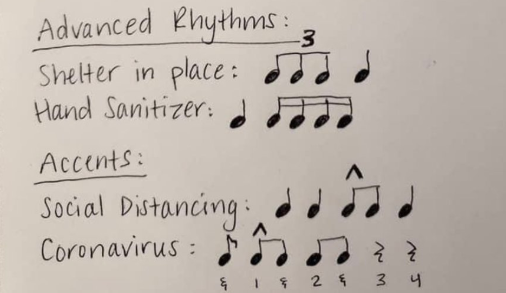 Advanced Rhythms:
3
Shelter in place:
Hand Sanitizer:
Accents:
Social Distancing:
Coronavirus:
& 1 & 2 & 3 4